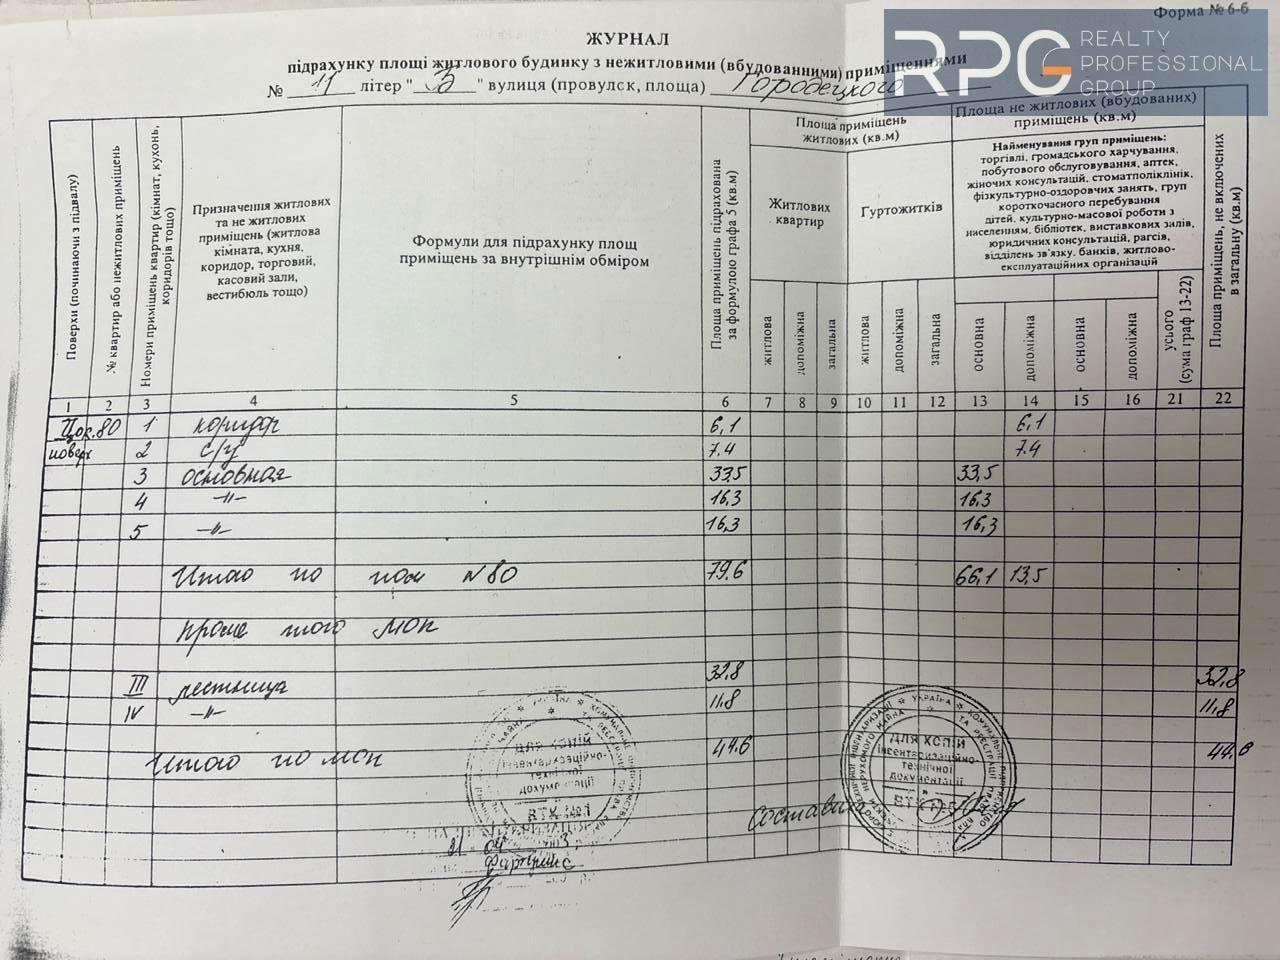 Форма № 6-б
RPG REALTY PROFESSIONAL GROUP
ЖУРНАЛ
підрахунку площі житлового будинку з нежитловими (вбудованними) приміщеннями
№ 11 літер " З " вулиця (провулск, площа) Городецкого
Поверхи (починаючи з підвалу)
№ квартир або нежитлових приміщень
Номери приміщень квартир (кімнат, кухонь, коридорів тощо)
Призначення житлових
та не житлових
приміщень (житлова
кімната, кухня,
коридор, торговий,
касовий зали,
вестибюль тощо)
Формули для підрахунку площ
приміщень за внутрішнім обміром
Площа приміщень підрахована
за формулою графа 5 (кв.м)
Площа приміщень
житлових (кв.м)
Житлових
квартир
Гуртожитків
житлова
допоміжна
загальна
житлова
допоміжна
загальна
Площа не житлових (вбудованих)
приміщень (кв.м)
Найменування груп приміщень:
торгівлі, громадського харчування,
побутового обслуговування, аптек,
жіночих консультацій, стоматполіклінік,
фізкультурно-оздоровчих занять, груп
короткочасного перебування
дітей, культурно-масової роботи з
населенням, бібліотек, виставкових залів,
юридичних консультацій, рагсів,
відділень зв'язку. банків, житлово-
експлуатаційних організацій
основна
допоміжна
основна
допоміжна
усього
(сума граф 13-22)
Площа приміщень, не включених
в загальну (кв.м)
1 2 3 4 5 6 7 8 9 10 11 12 13 14 15 16 21 22
Цок. 80 1 коридор 6,1 6,1
поверх 2 с/у 7.4 7.4
3 основная 33,5 33,5
4 -"- 16,3 16,3
5 -"- 16,3 16,3
Итого по пом №80 79.6 66,1 13,5
кроме того моп
III лестница 32,8 32,8
IV -"- 11,8 11,8
Итого по моп 44.6 44.6
ДЛЯ КОПІЙ
інвентаризаційно-
технічної
документації
ВТК №1
ДЛЯ КОПІЙ
інвентаризаційно-
технічної
документації
Составил